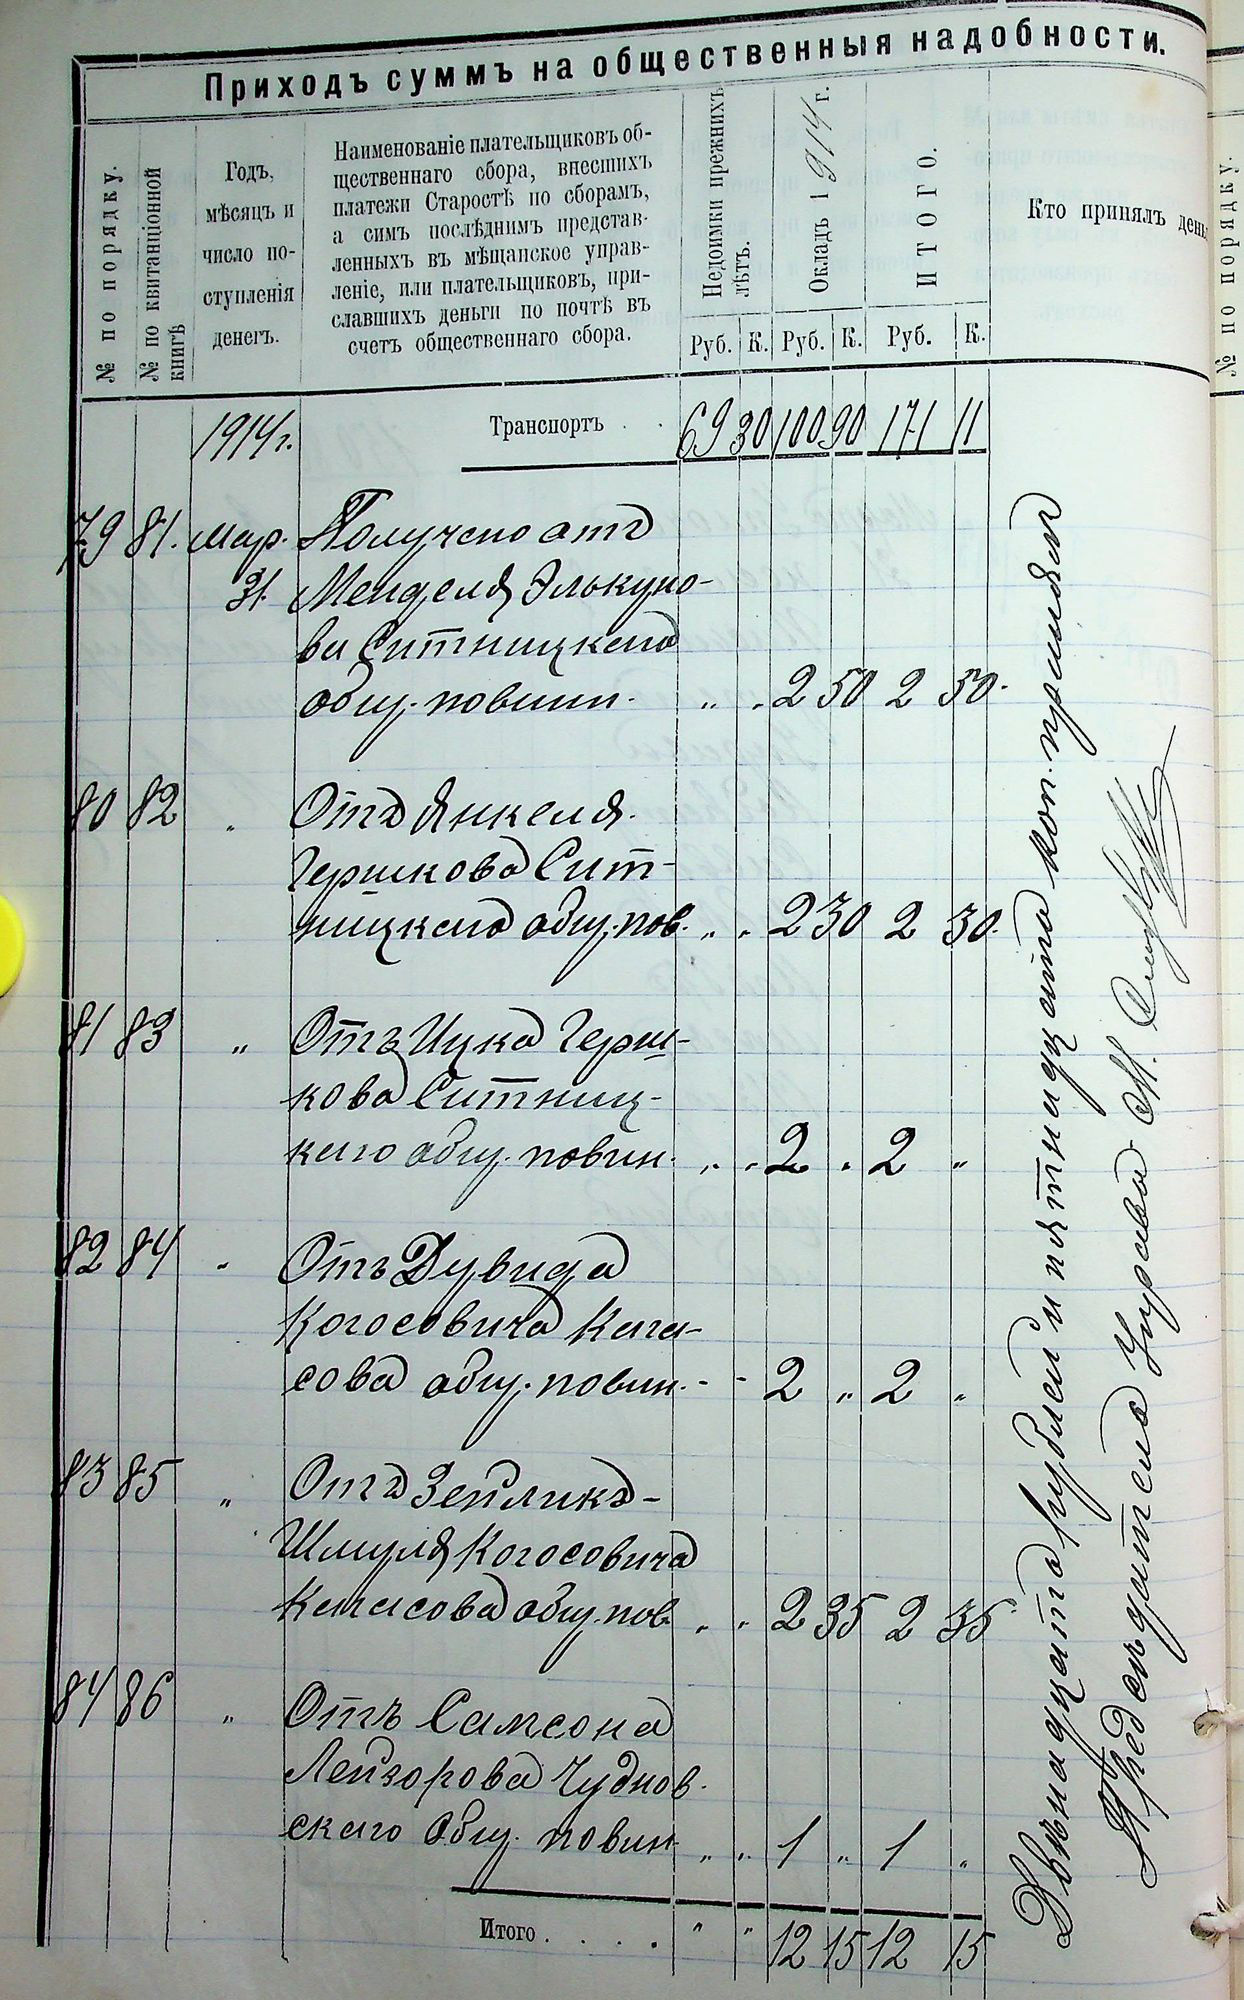 Приходъ суммъ на общественныя надобности.
№ по порядку.
№ по квитанціонной
книгѣ
Годъ,
мѣсяцъ и
число по-
ступленія
денегъ.
Наименованіе плательщиковъ об-
щественнаго сбора, внесшихъ
платежи Старостѣ по сборамъ,
а симъ послѣднимъ представ-
ленныхъ въ мѣщанское управ-
леніе, или плательщиковъ, при-
славшихъ деньги по почтѣ въ
счетъ общественнаго сбора.
Недоимки прежнихъ
лѣтъ.
Окладъ 1914 г.
ИТОГО.
Кто принялъ день
Руб. К. Руб. К. Руб. К.
1914 г. Транспортъ . . 69 30 100 90 171 11
79 81. Мар. Получено отъ
31. Менделя Элькуно-
ва Ситницкаго
общ. повин. „ „ 2 50 2 50.
80 82 „ Отъ Янкеля
Гершкова Сит-
ницкаго общ. пов. „ „ 2 30 2 30.
81 83 „ Отъ Ицка Герш-
кова Ситниц-
каго общ. повин. „ „ 2 „ 2 „
82 84 „ Отъ Дувида
Когосовича Кага-
сова общ. повин. - - 2 „ 2 „
83 85 „ Отъ Зейликъ-
Шмуля Когосовича
Кагасова общ. пов „ „ 2 35 2 35.
84 86 „ Отъ Самсона
Лейзорова Чуднов-
скаго общ. повин „ „ 1 „ 1 „
Итого . . . . „ „ 12 15 12 15
Двѣнадцать рублей и пятнадцать коп. принялъ
Предсѣдатель Управы М.
№ по порядку.